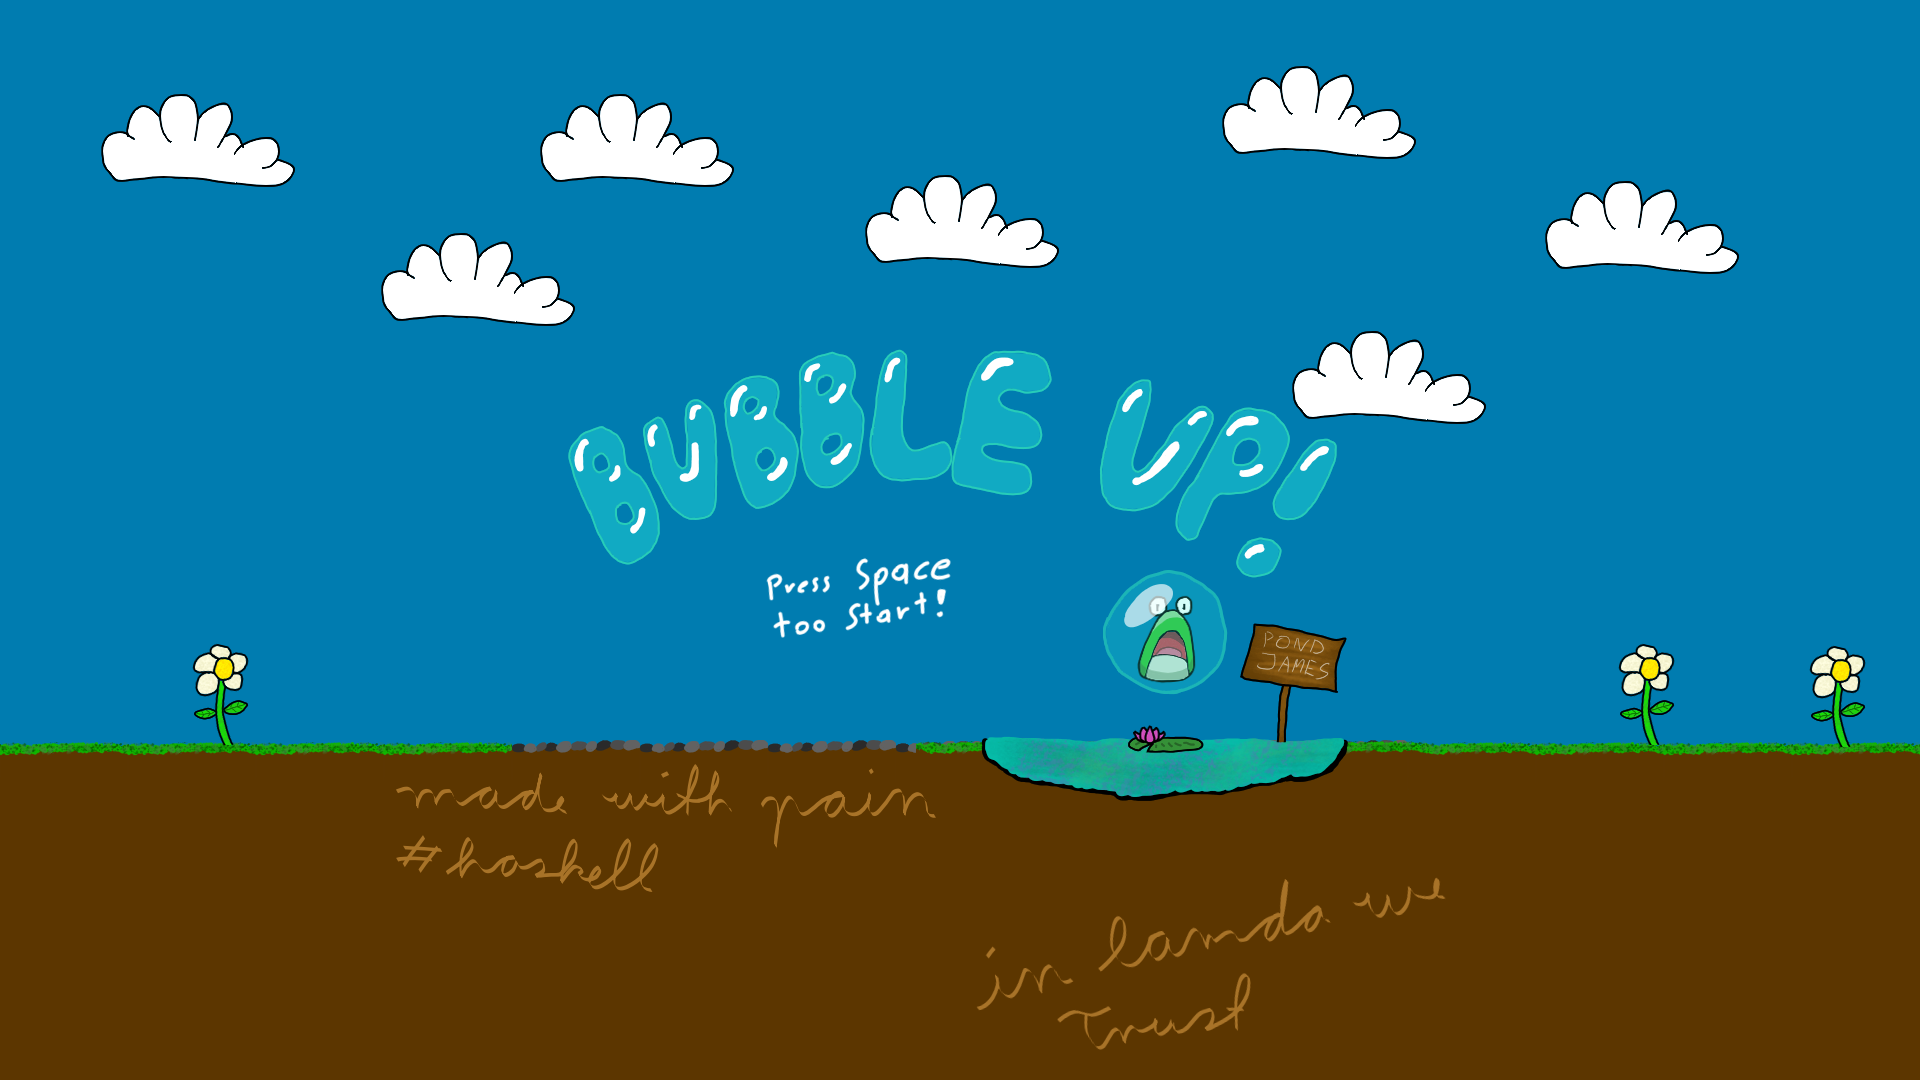 BUBBLE UP!
Press Space
too Start!
POND
JAMES
made with pain
#haskell
in lamda we
Trust